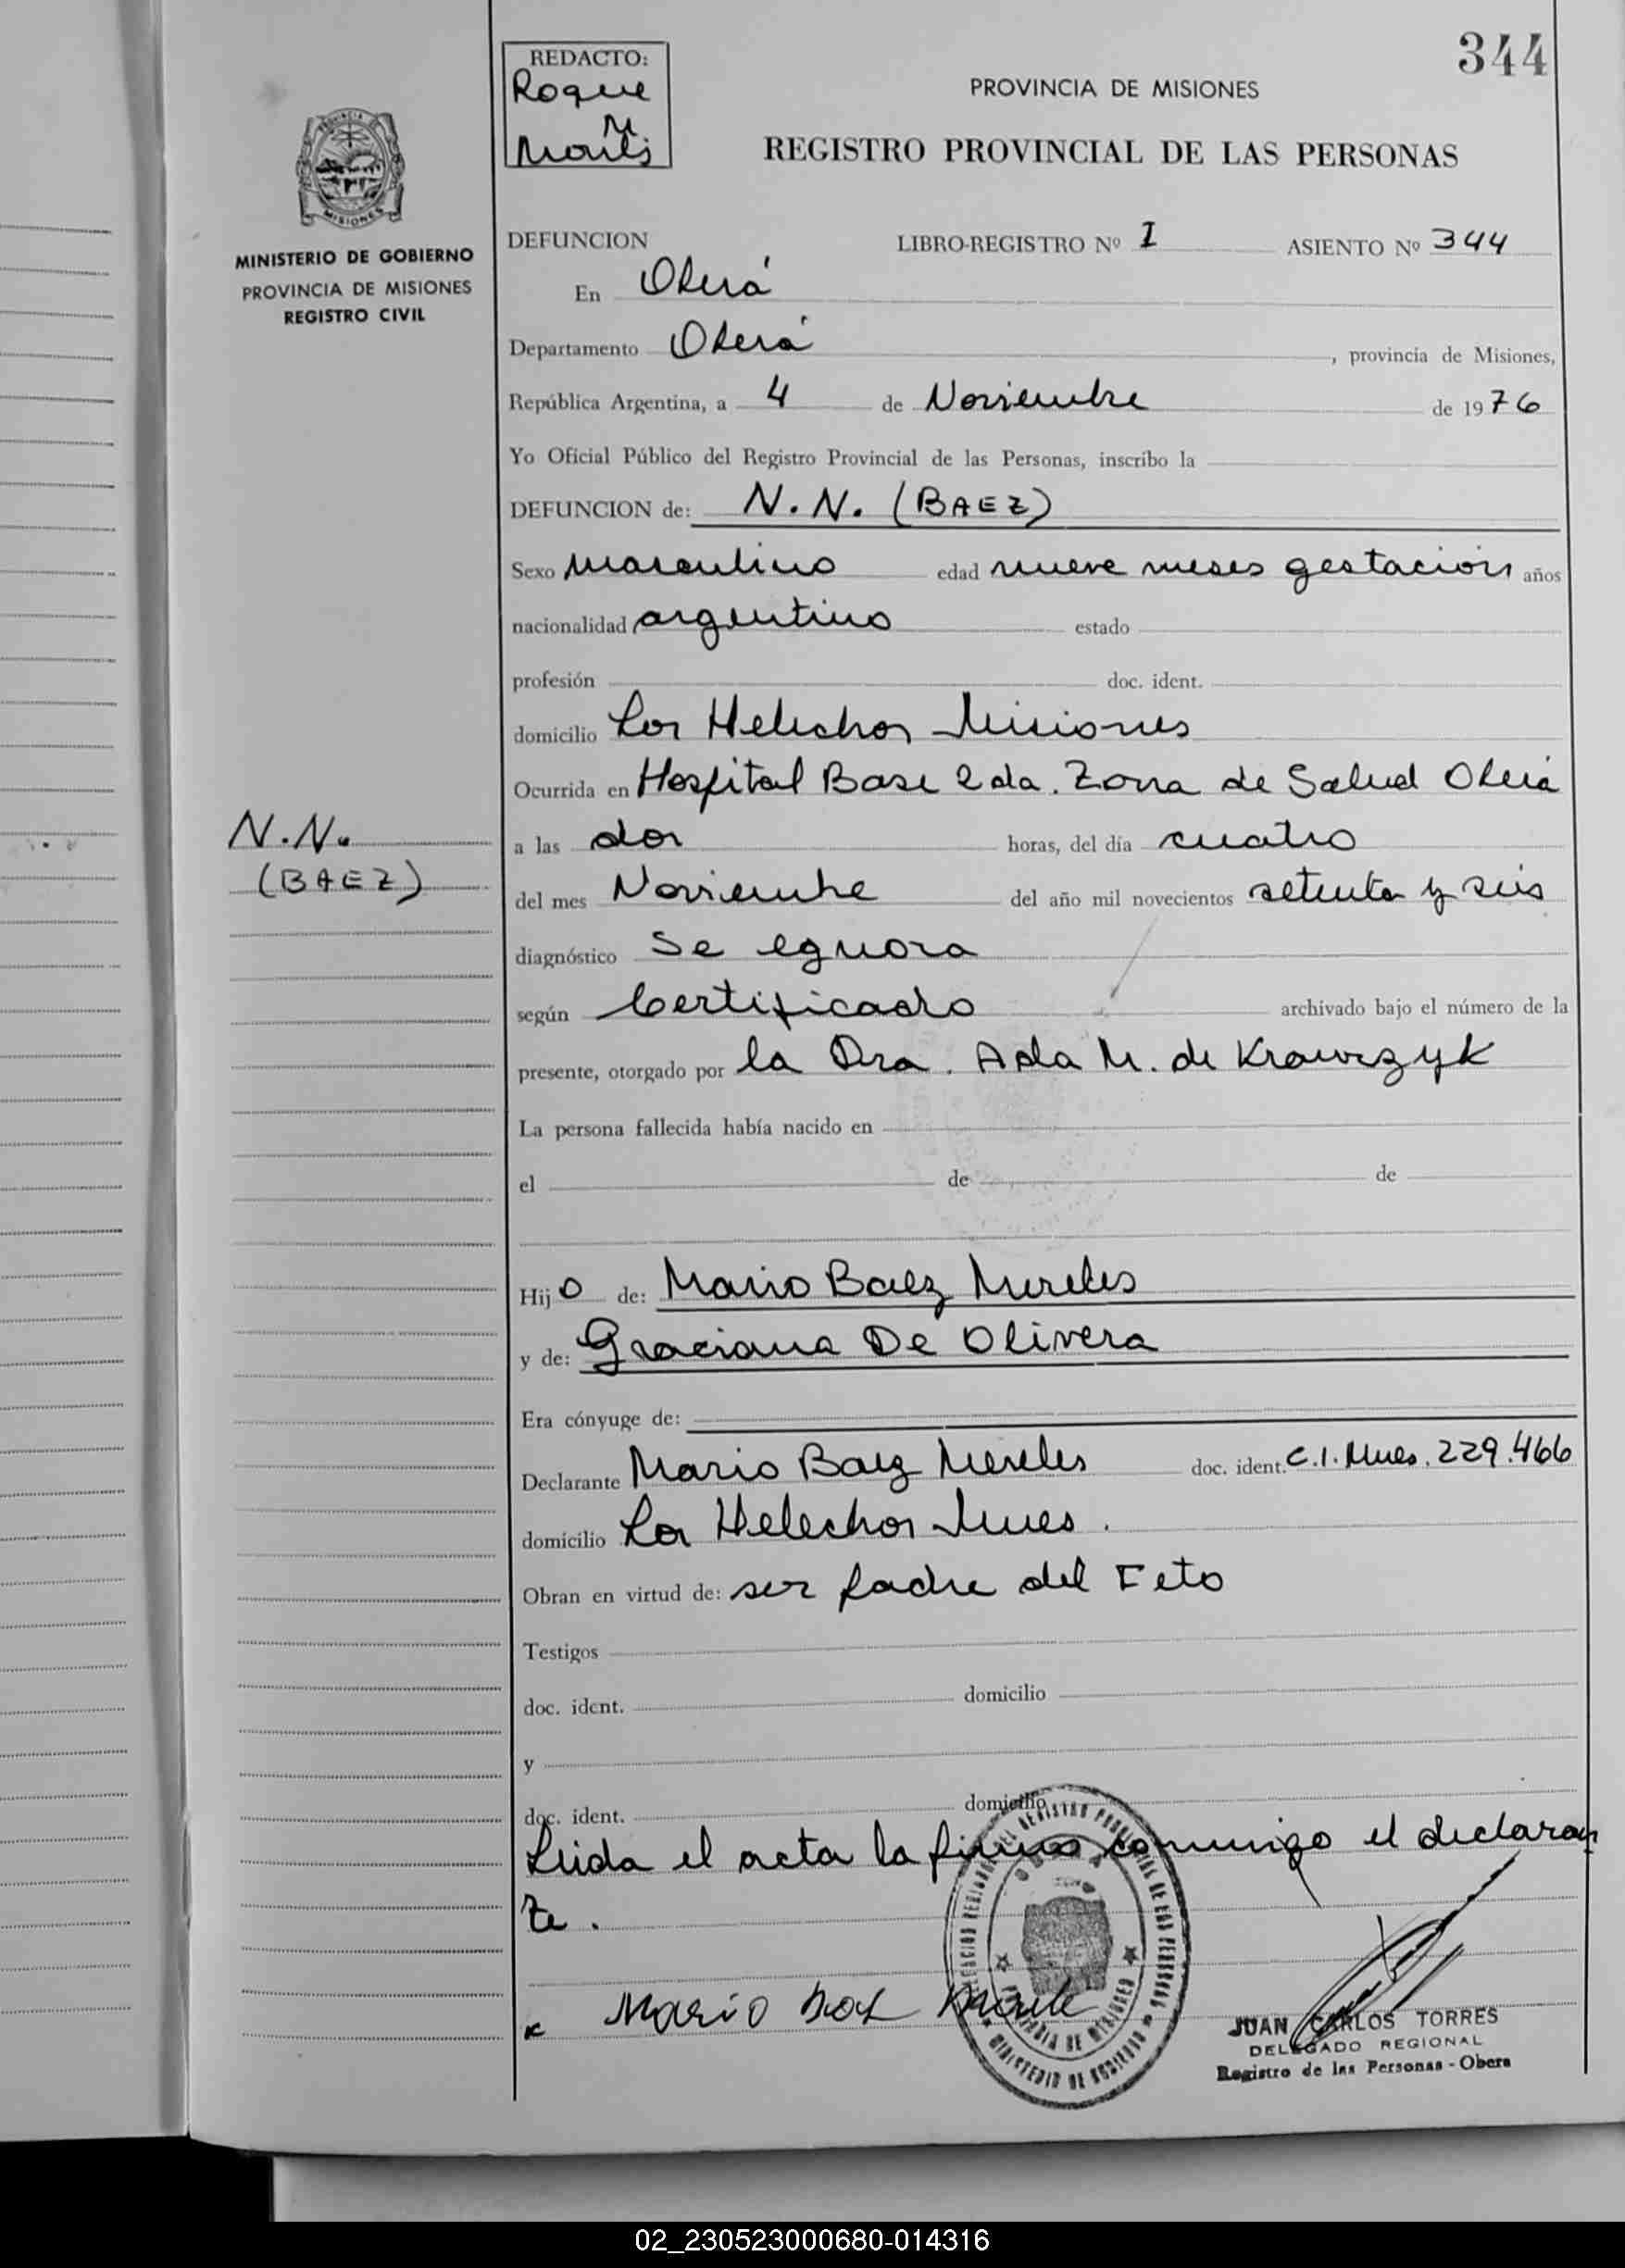 344
REDACTO:
Roque
M
PROVINCIA DE MISIONES
REGISTRO PROVINCIAL DE LAS PERSONAS
MISIONES
MINISTERIO DE GOBIERNO
PROVINCIA DE MISIONES
REGISTRO CIVIL
DEFUNCION LIBRO-REGISTRO Nº I ASIENTO Nº 344
En Oberá
Departamento Oberá, provincia de Misiones,
República Argentina, a 4 de Noviembre de 1976
Yo Oficial Público del Registro Provincial de las Personas, inscribo la
DEFUNCION de: N.N. (BAEZ)
Sexo masculino edad nueve meses gestación años
nacionalidad argentino estado
profesión doc. ident.
domicilio Los Helechos Misiones
Ocurrida en Hospital Base 2da. Zona de Salud Oberá
N.N.
(BAEZ)
a las dos horas, del día cuatro
del mes Noviembre del año mil novecientos setenta y seis
diagnóstico Se egnora
según Certificado archivado bajo el número de la
presente, otorgado por la Dra. Ada M. de Krawczyk
La persona fallecida había nacido en
el de de
Hijo de: Mario Baez Mereles
y de: Graciana De Olivera
Era cónyuge de:
Declarante Mario Baez Mereles doc. ident. C.I. Mnes. 229.466
domicilio Los Helechos Mnes.
Obran en virtud de: ser padre del Feto
Testigos
doc. ident. domicilio
y
doc. ident. domicilio
Leida el acta la firma conmigo el declaran
te.
MARIO
JUAN CARLOS TORRES
DELEGADO REGIONAL
Registro de las Personas - Obera
02_230523000680-014316